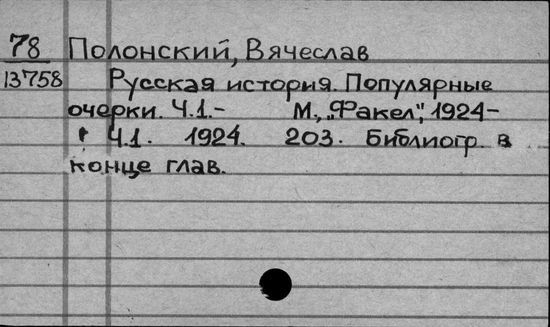 78 Полонский, Вячеслав
13758 Русская история. Популярные
очерки. Ч.1.- М., „Факел", 1924-
Ч.1. 1924. 203. Библиогр. в
конце глав.